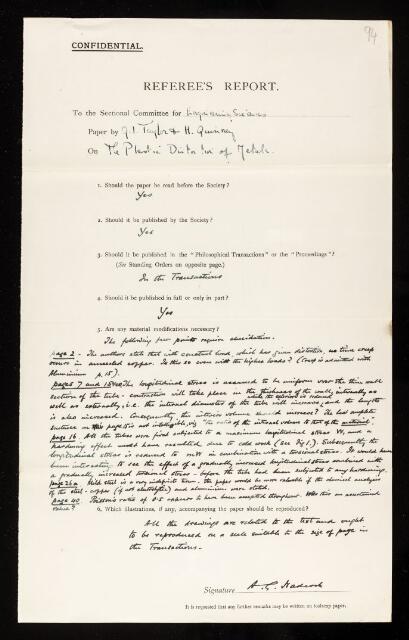 94
CONFIDENTIAL.
REFEREE'S REPORT.
To the Sectional Committee for Engineering Sciences
Paper by G. I. Taylor & H. Quinney
On The Plastic Distortion of Metals.
1. Should the paper be read before the Society?
Yes
2. Should it be published by the Society?
Yes
3. Should it be published in the "Philosophical Transactions" or the "Proceedings"?
(See Standing Orders on opposite page.)
In the Transactions
4. Should it be published in full or only in part?
Yes
5. Are any material modifications necessary?
The following few points require elucidation.
page 2 - The authors state that with constant load, which has given distortion, no time creep
occurs in annealed copper. Is this so even with the higher loads? (Creep is admitted with
Aluminium p. 15).
pages 7 and The longitudinal stress is assumed to be uniform over the thin wall
section of the tube - contraction will take place in the thickness of the wall, internally as
well as externally, i.e. the internal diameter of the tube will increase, and the length
is also increased. Consequently, the interior volume should increase? The last complete
sentence on this page is not intelligible, viz "the ratio of the internal volume to that of the material".
page 16. All the tubes were first subjected to a maximum longitudinal stress W, and a
hardening effect would have resulted, due to cold work (see fig 1). Subsequently the
longitudinal stress is reduced to mW in combination with a torsional stress. It would have
been interesting to see the effect of a gradually increased longitudinal stress combined with
a gradually increased torsional stress - before the tube had been subjected to any hardening.
page 26a Mild steel is a very indefinite term - the paper would be more valuable if the chemical analyses
of the steel - copper (if not electrolytic) and aluminium were stated.
page 40 Poisson's ratio of 0.5 appears to have been accepted throughout. Was this an ascertained
value?
6. Which illustrations, if any, accompanying the paper should be reproduced?
All the drawings are related to the text and ought
to be reproduced on a scale suitable to the size of page in
the Transactions.
Signature A. G. Hadcock
It is requested that any further remarks may be written on foolscap paper.